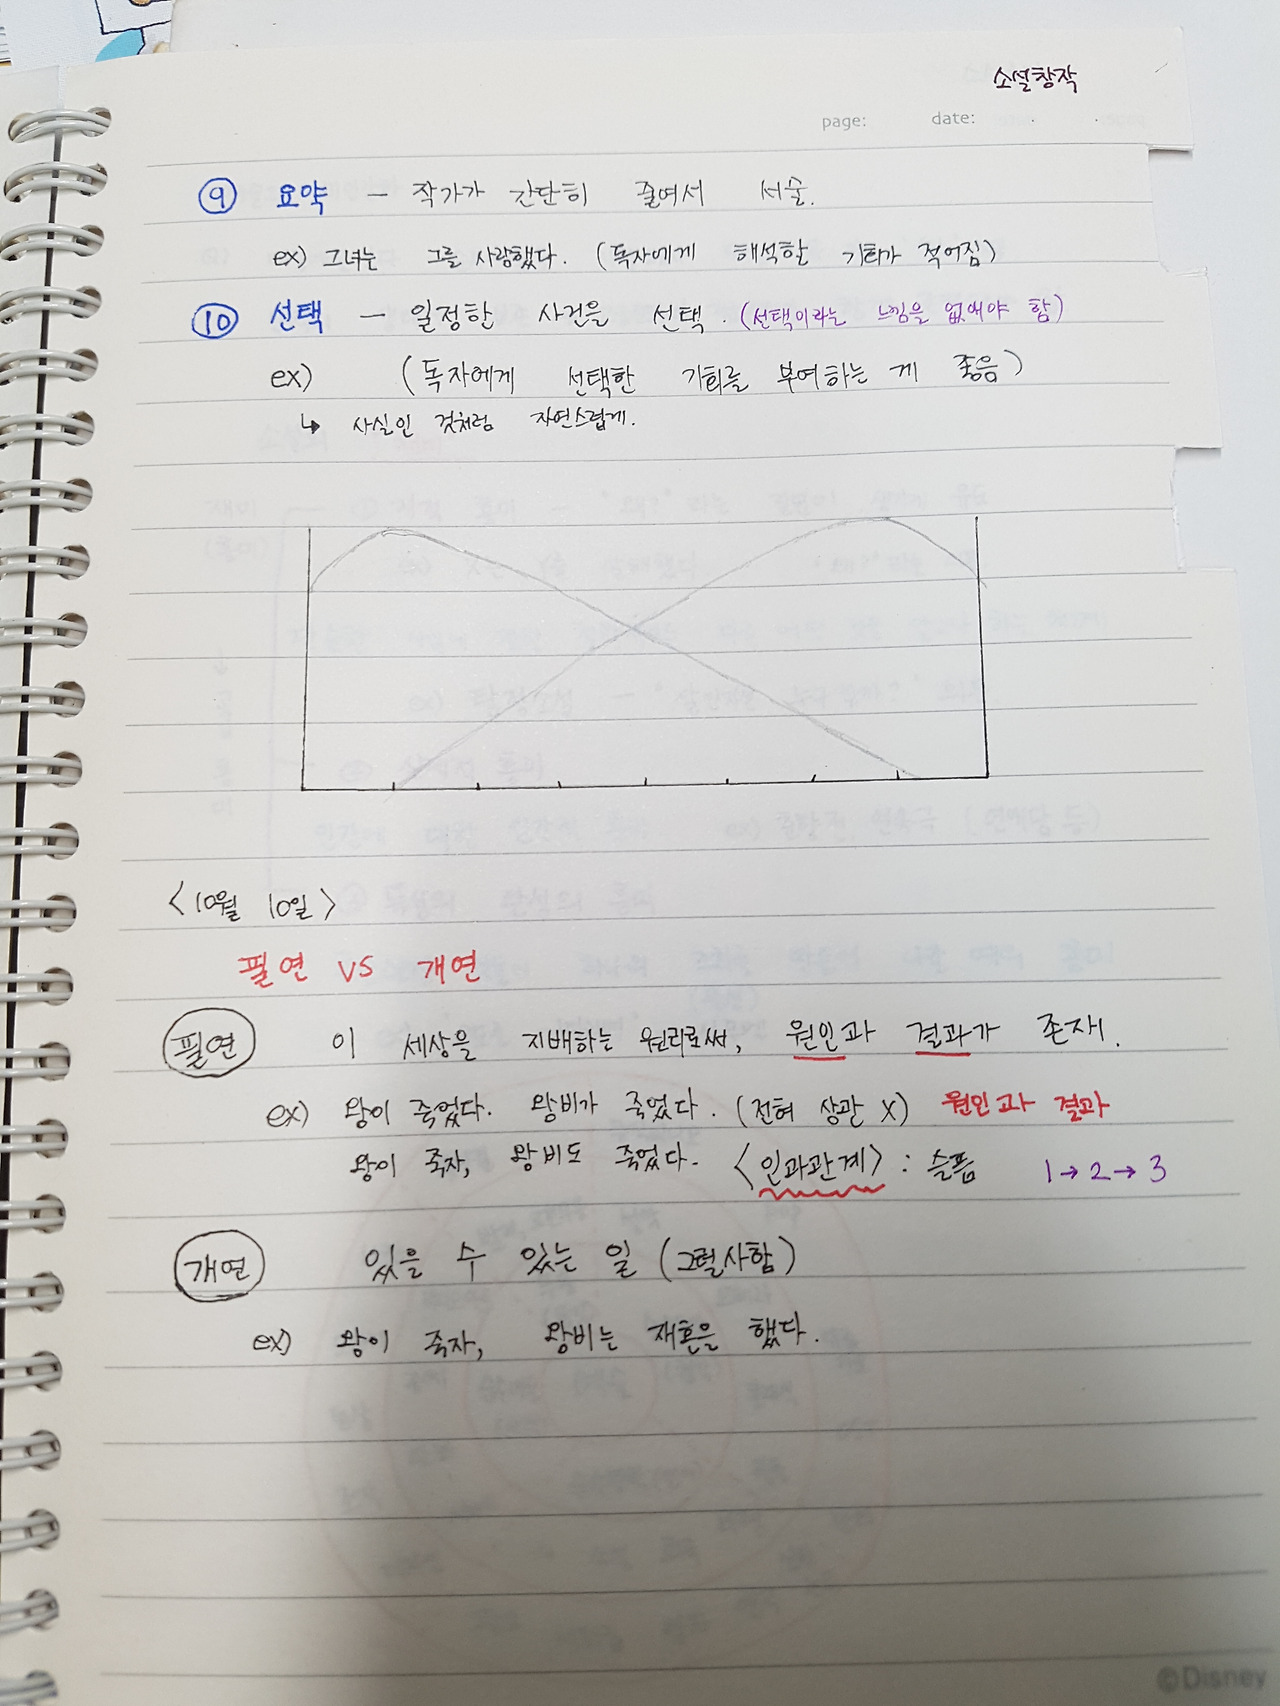 소설창작
page: date:
⑨ 요약 - 작가가 간단히 줄여서 서술.
ex) 그녀는 그를 사랑했다. (독자에게 해석할 기회가 적어짐)
⑩ 선택 - 일정한 사건을 선택. (선택이라는 느낌을 없애야 함)
ex) (독자에게 선택한 기회를 부여하는 게 좋음)
↳ 사실인 것처럼 자연스럽게.
<10월 10일>
필연 VS 개연
필연 이 세상을 지배하는 원리로써, 원인과 결과가 존재.
ex) 왕이 죽었다. 왕비가 죽었다. (전혀 상관 X) 원인과 결과
왕이 죽자, 왕비도 죽었다. <인과관계> : 슬픔 1→2→3
개연 있을 수 있는 일 (그럴사함)
ex) 왕이 죽자, 왕비는 재혼을 했다.
©Disney